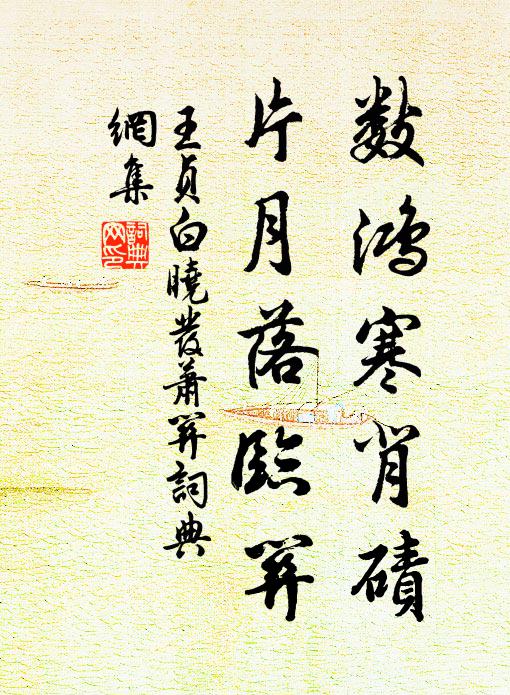 數鴻寒背磧
片月落臨關
王貞白曉發蕭關詞典
網集
詞典
网印